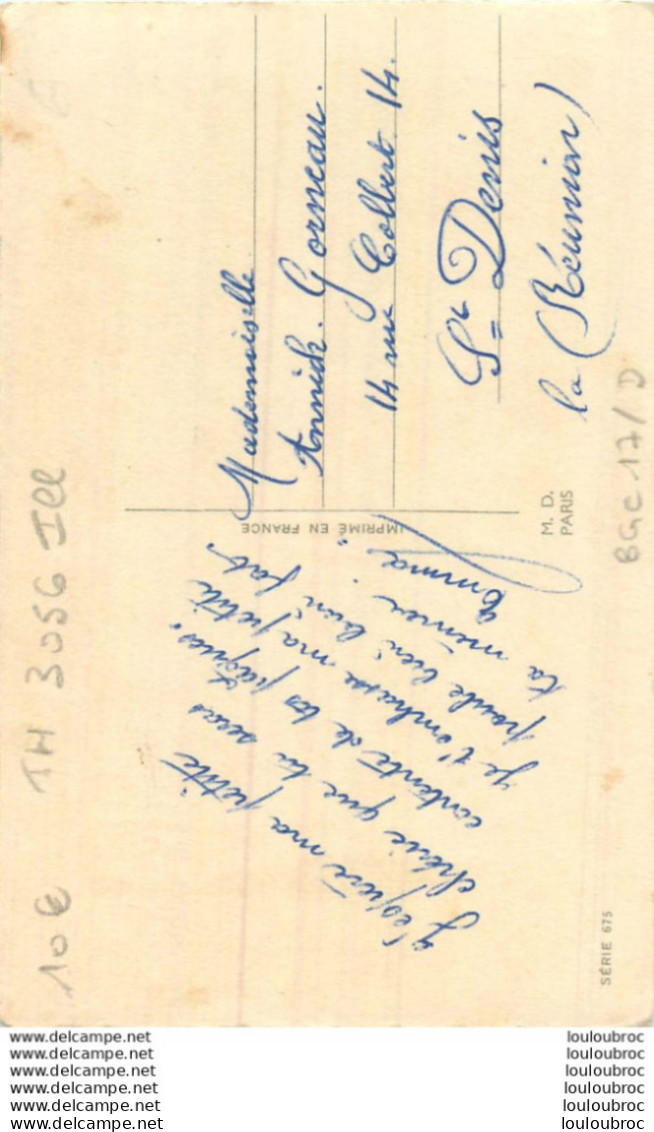 10€ TH 3056 Ill
J'espère ma petite
chérie que tu seras
contente de tes pâques,
je t'embrasse ma petite
poule bien bien fort.
ta mémée
Emma
IMPRIMÉ EN FRANCE
M. D.
PARIS
Mademoiselle
Annick. Gorneau.
14 rue Colbert. 14.
St Denis
(la Réunion)
SÉRIE 675
BGC 17/D
www.delcampe.net
www.delcampe.net
www.delcampe.net
www.delcampe.net
www.delcampe.net
www.delcampe.net
louloubroc
louloubroc
louloubroc
louloubroc
louloubroc
louloubroc